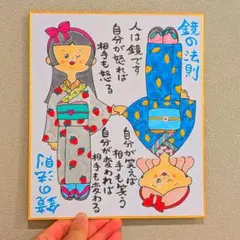 鏡の法則
人は鏡です
自分が怒れば
相手も怒る
自分が笑えば
相手も笑う
自分が変われば
相手も変わる
鏡の法則